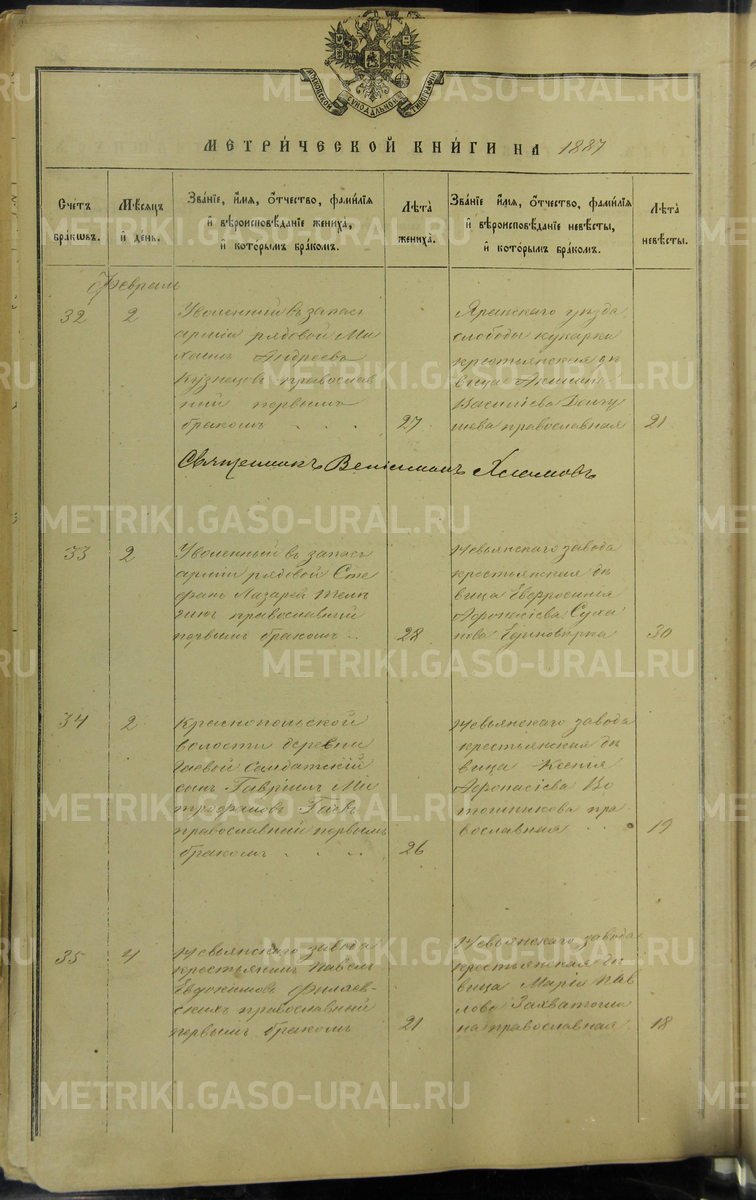 МОСКОВСКОЙ СѴНОДАЛЬНОЙ ТИПОГРАФІИ
МЕТРИ́ЧЕСКОЙ КНИ́ГИ НА 1887
Счетъ бра́кѡвъ.
Мѣ́сѧцъ и҆ де́нь.
Зва́нїе, и҆́мѧ, ѻ҆́тчество, фами́лїѧ
и҆ вѣроисповѣ́данїе жениха̀,
и҆ кото́рымъ бра́комъ.
Лѣта̀ жениха̀.
Зва́нїе, и҆́мѧ, ѻ҆́тчество, фами́лїѧ
и҆ вѣроисповѣ́данїе невѣ́сты,
и҆ кото́рымъ бра́комъ.
Лѣта̀ невѣ́сты.
Февраль
32
2
Уволенный въ запасъ
арміи рядовой Ми
хаилъ Андреевъ
Кузнецовъ православ
ный первымъ
бракомъ
27
Яранскаго уѣзда
слободы Кукарка
крестьянская дѣ
вица
Василіева
православная
21
Священникъ Веніаминъ
33
2
Уволенный въ запасъ
арміи рядовой Сте
фанъ Лазарев
православный
первымъ бракомъ
28
Невьянскаго завода
крестьянская дѣ
вица Евфросинія
Афонасіева Суха
нова Единовѣрка
30
34
2
Краснопольской
волости деревни
Гаевой Солдатскій
сынъ Гавріилъ Ми
трофановъ Гаевъ
православный первымъ
бракомъ
26
Невьянскаго завода
крестьянская дѣ
вица Ксенія
Афонасіева
пра
вославная
19
35
4
Невьянскаго завода
крестьянинъ Павелъ
Евдокимовъ Филаев-
скихъ православный
первымъ бракомъ
21
Невьянскаго завода
крестьянская дѣ
вица Марія Пав
лова Захваткина
православная
18
METRIKI.GASO-URAL.RU